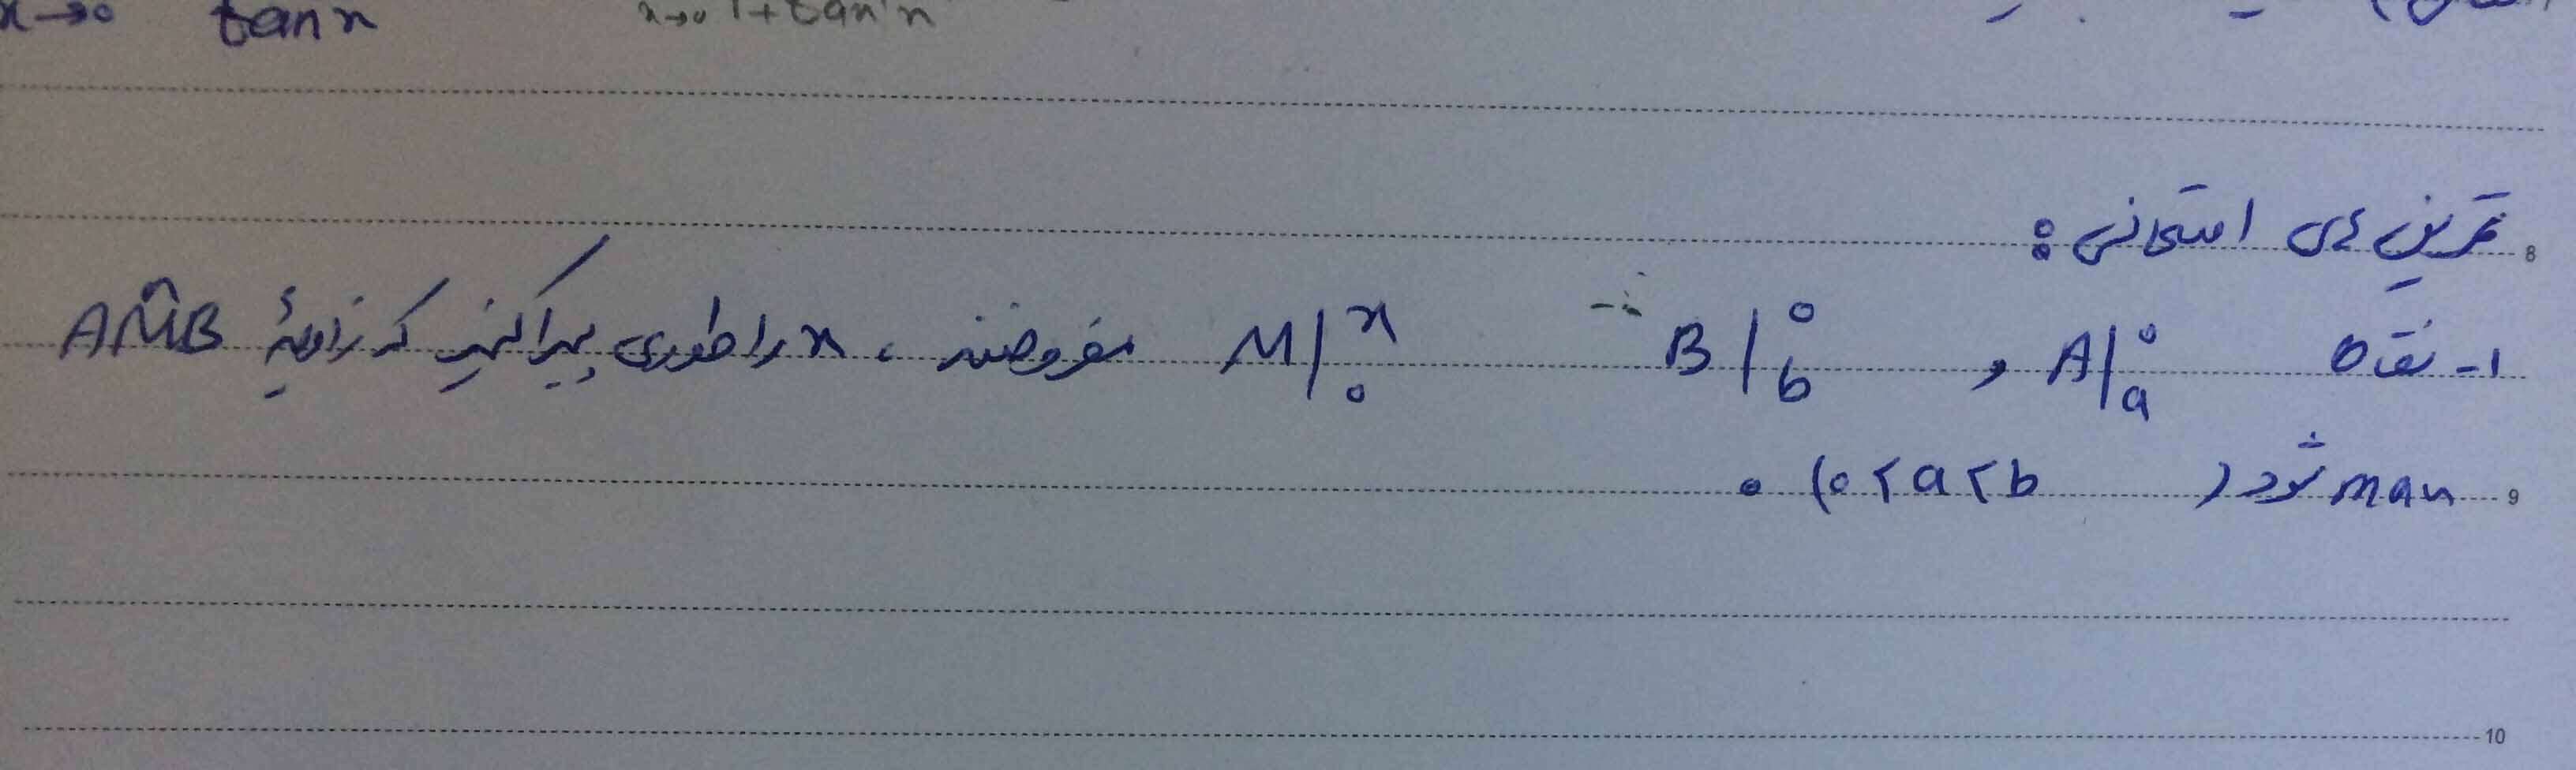 x→0 tan x x→0 1+tan²x
تمرین های امتحانی:
8
۱- نقاط A|⁰ₐ و B|⁰_b M|ˣ₀ مفروضند، x را طوری پیدا کنید که زاویهٔ AM̂B
max شود (0<a<b).
9
10